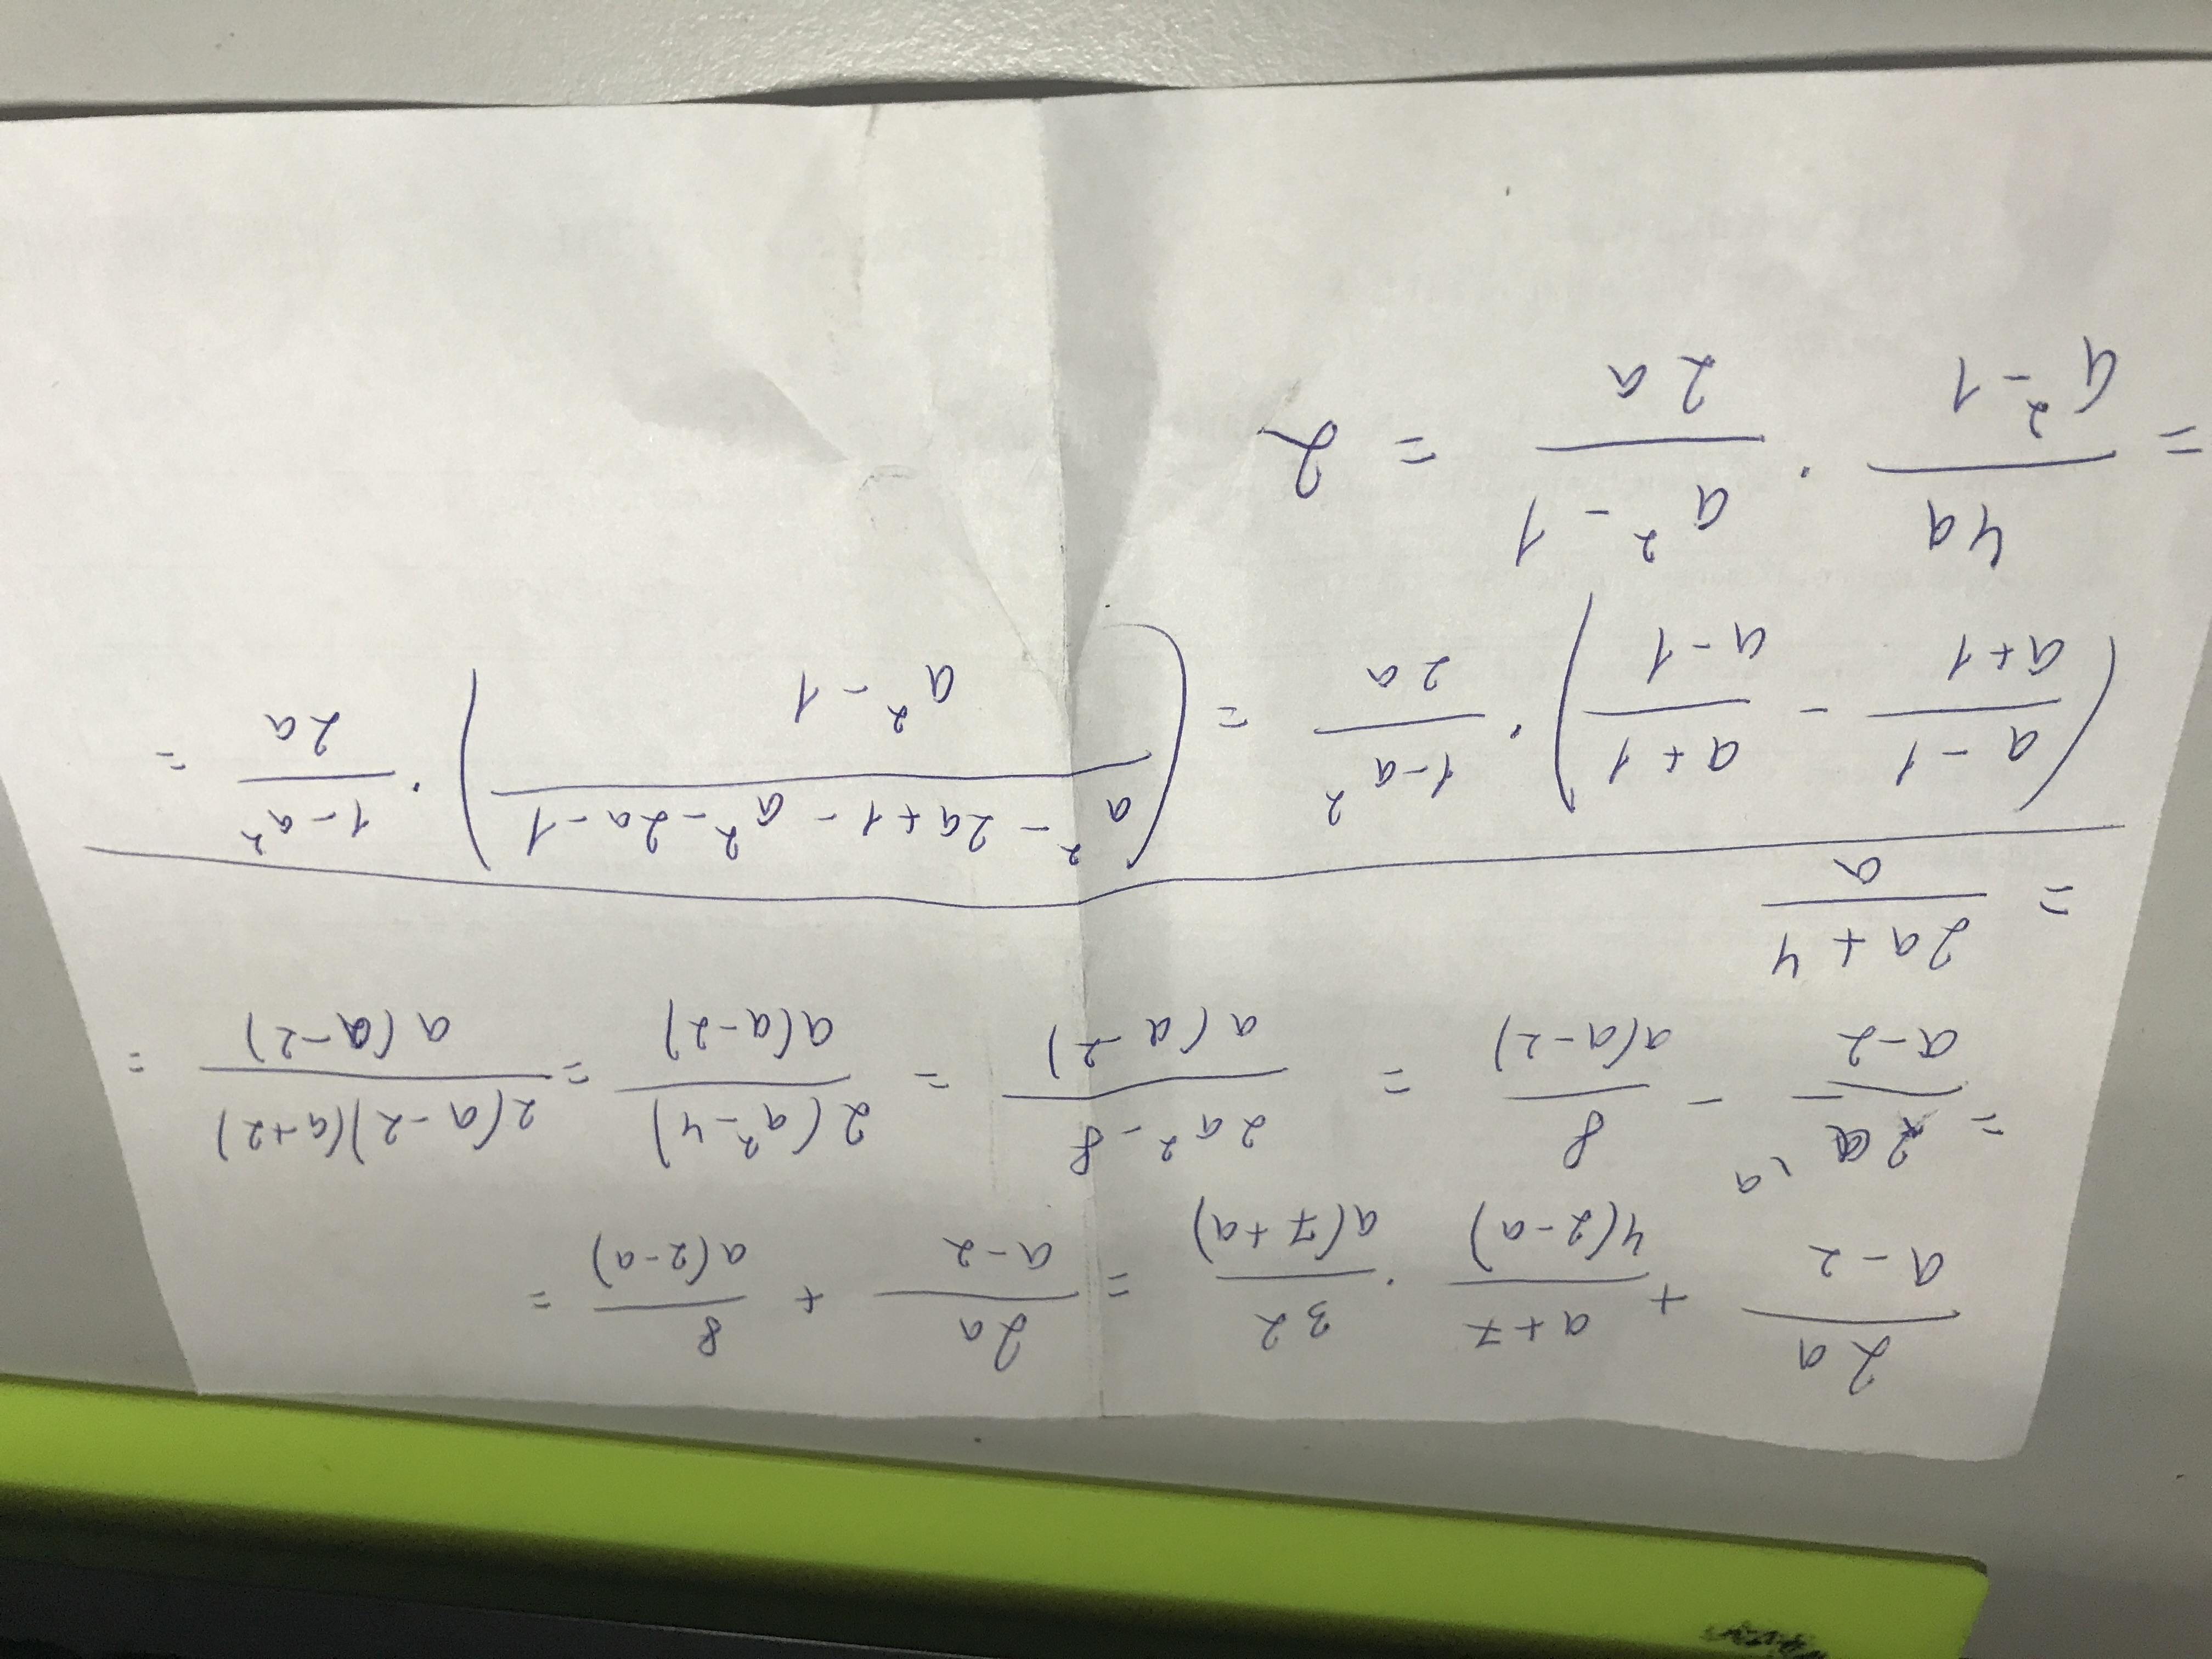 2a/(a-2) + (a+7)/(4(2-a)) · 32/(a(7+a)) = 2a/(a-2) + 8/(a(2-a)) =
= 2a\a/(a-2) - 8/(a(a-2)) = (2a²-8)/(a(a-2)) = 2(a²-4)/(a(a-2)) = 2(a-2)(a+2)/(a(a-2)) =
= (2a+4)/a
((a-1)/(a+1) - (a+1)/(a-1)) · (1-a²)/(2a) = ((a²-2a+1-a²-2a-1)/(a²-1)) · (1-a²)/(2a) =
= 4a/(a²-1) · (a²-1)/(2a) = 2